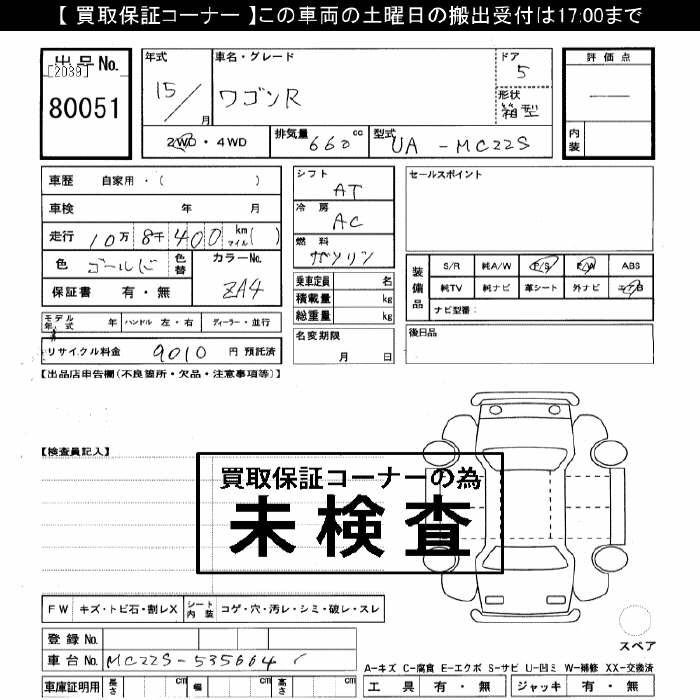 【 買取保証コーナー 】この車両の土曜日の搬出受付は17:00まで
出品No.
[2039]
80051
年式
15/
月
車名・グレード
ワゴンR
ドア
5
形状
箱型
評価点
―
内装
2WD・4WD
排気量 660 cc
型式 UA-MC22S
車歴 自家用・( )
車検 年 月
走行 10万 8千 400 km マイル( )
色 ゴールド 色替
カラーNo.
ZA4
保証書 有・無
シフト
AT
冷房
AC
燃料
ガソリン
乗車定員 名
積載量 kg
総重量 kg
名変期限
月 日
セールスポイント
装備品
S/R 純A/W P/S P/W ABS
純TV 純ナビ 革シート 外ナビ エアB
ナビ型番:
後日品
モデル年式 年 ハンドル 左・右 ディーラー・並行
リサイクル料金 9010 円 預託済
【出品店申告欄(不良箇所・欠品・注意事項等)】
【検査員記入】
買取保証コーナーの為
未検査
FW キズ・トビ石・割レX シート内装 コゲ・穴・汚レ・シミ・破レ・スレ
登録No.
車台No. MC22S-535664
車庫証明用 長さ cm 幅 cm 高さ cm
スペア
A−キズ C−腐食 E−エクボ S−サビ U−凹ミ W−補修 XX−交換済
工具 有・無 ジャッキ 有・無